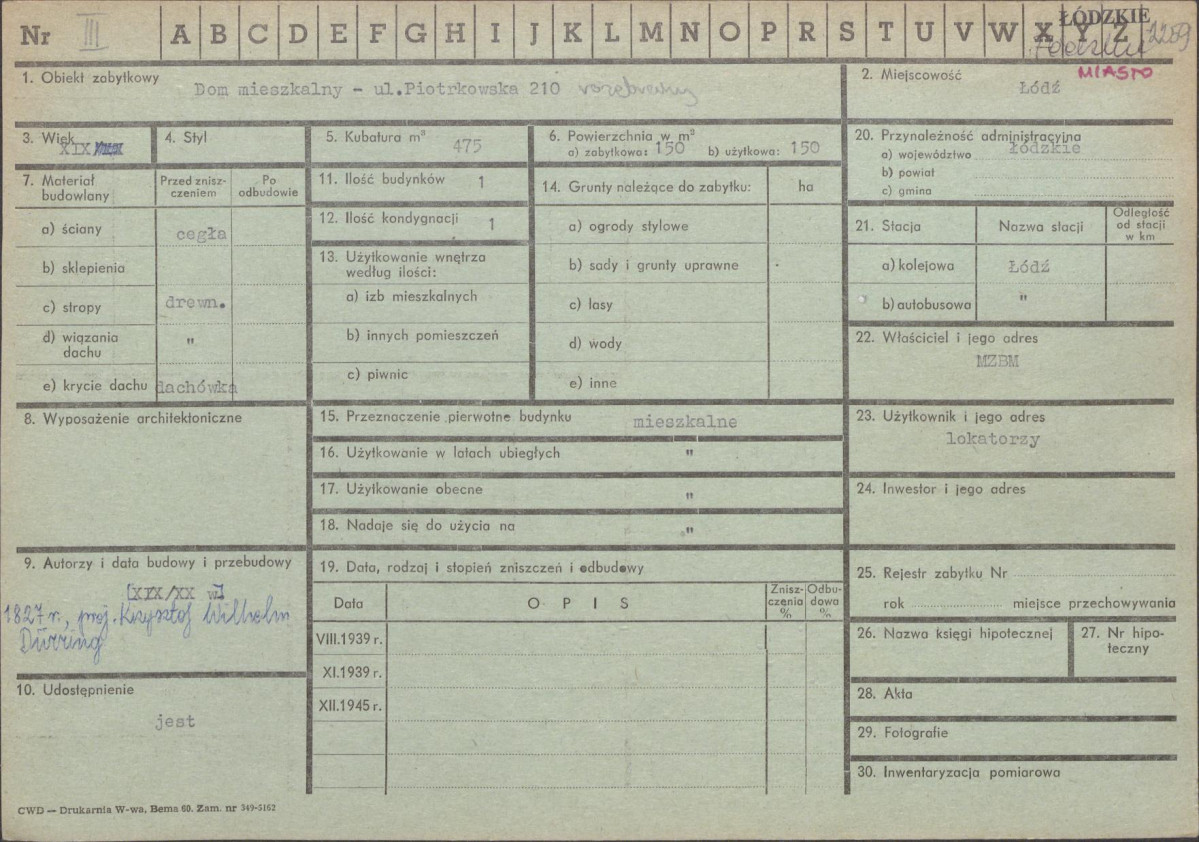 Nr III A B C D E F G H I J K L M N O P R S T U V W X Y Z
ŁÓDZKIE
2289
MIASTO
1. Obiekt zabytkowy
Dom mieszkalny - ul.Piotrkowska 210 rozebrany
2. Miejscowość
Łódź
3. Wiek
XIX
4. Styl
5. Kubatura m³
475
6. Powierzchnia w m²
a) zabytkowa: 150 b) użytkowa: 150
20. Przynależność administracyjna
a) województwo łódzkie
b) powiat
c) gmina
7. Materiał budowlany
Przed zniszczeniem
Po odbudowie
a) ściany cegła
b) sklepienia
c) stropy drewn.
d) wiązania dachu "
e) krycie dachu dachówka
11. Ilość budynków 1
12. Ilość kondygnacji 1
13. Użytkowanie wnętrza
według ilości:
a) izb mieszkalnych
b) innych pomieszczeń
c) piwnic
14. Grunty należące do zabytku: ha
a) ogrody stylowe
b) sady i grunty uprawne
c) lasy
d) wody
e) inne
21. Stacja Nazwa stacji Odległość od stacji w km
a) kolejowa Łódź
b) autobusowa "
22. Właściciel i jego adres
MZBM
8. Wyposażenie architektoniczne
15. Przeznaczenie pierwotne budynku mieszkalne
16. Użytkowanie w latach ubiegłych "
17. Użytkowanie obecne "
18. Nadaje się do użycia na "
23. Użytkownik i jego adres
lokatorzy
24. Inwestor i jego adres
9. Autorzy i data budowy i przebudowy
[XIX/XX w]
1827 r., proj. Krzysztof Wilhelm
Dürring
10. Udostępnienie
jest
19. Data, rodzaj i stopień zniszczeń i odbudowy
Data OPIS Zniszczenia % Odbudowa %
VIII.1939 r.
XI.1939 r.
XII.1945 r.
25. Rejestr zabytku Nr
rok miejsce przechowywania
26. Nazwa księgi hipotecznej
27. Nr hipoteczny
28. Akta
29. Fotografie
30. Inwentaryzacja pomiarowa
CWD — Drukarnia W-wa, Bema 60. Zam. nr 349-5162